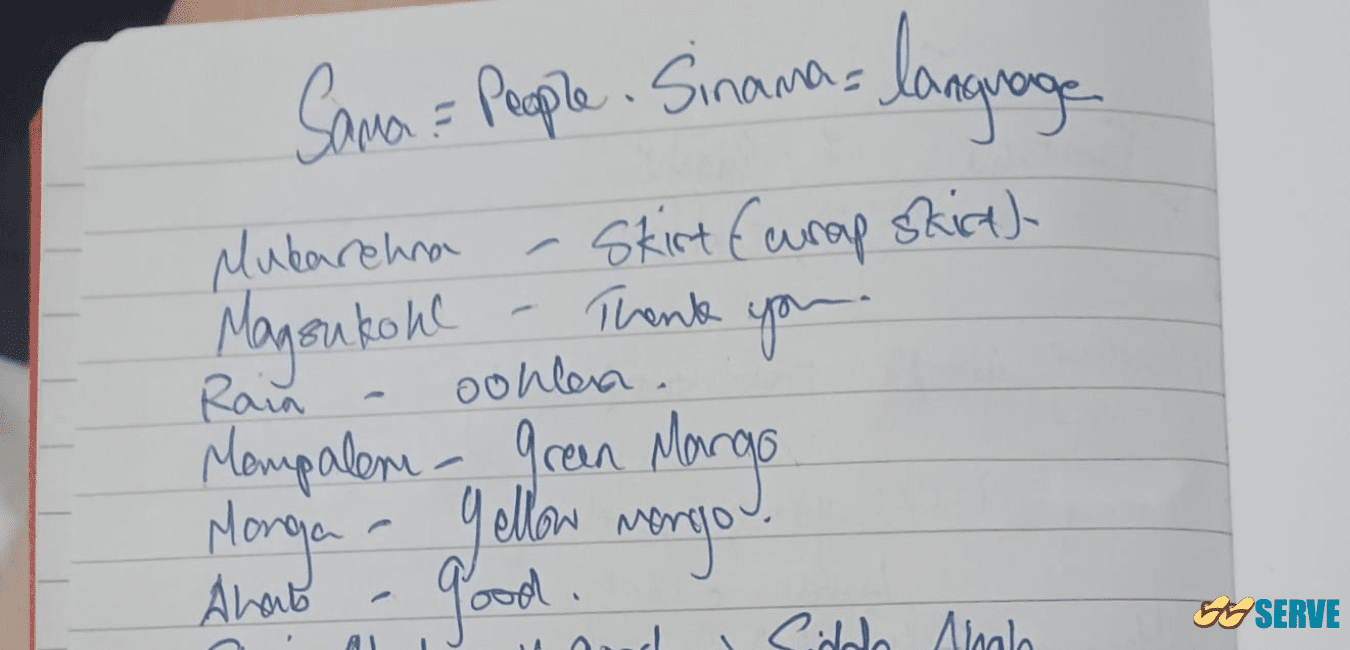 Sama = People. Sinama = language
Mubarehna - Skirt (wrap skirt).
Magsukohl - Thank you.
Rain - oohlan.
Mempalem - green Mango
Manga - yellow mango.
Ahab - good.
Sidda Ahab
SERVE